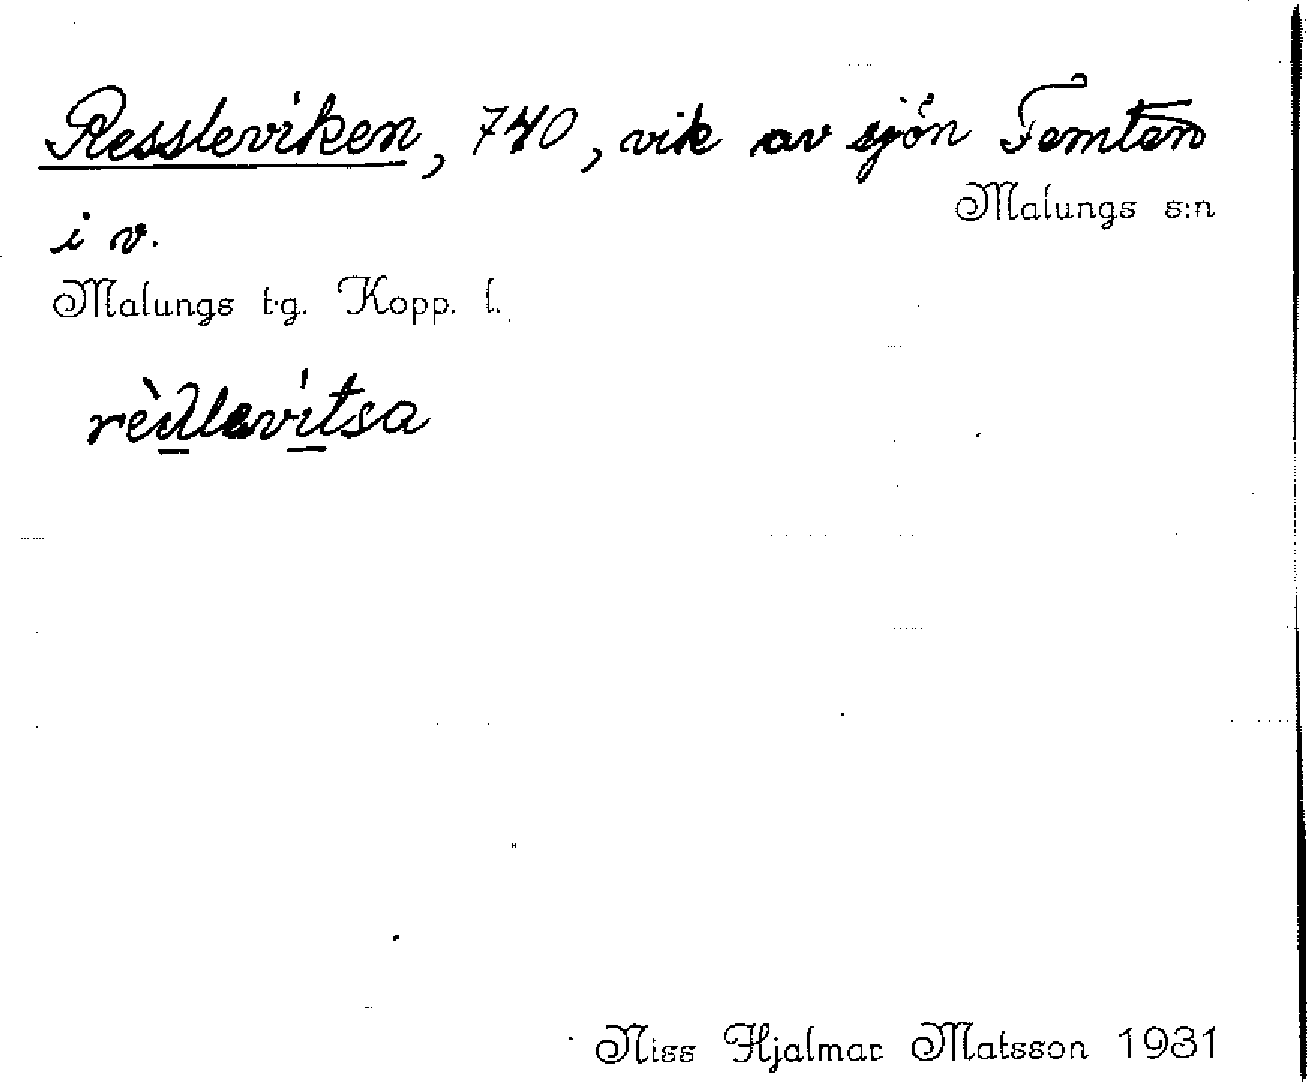 Ressleviken, 740, vik av sjön Femten
Malungs s:n
i v.
Malungs t.g. Kopp. l.
rèdlevítsa
Niss Hjalmar Matsson 1931